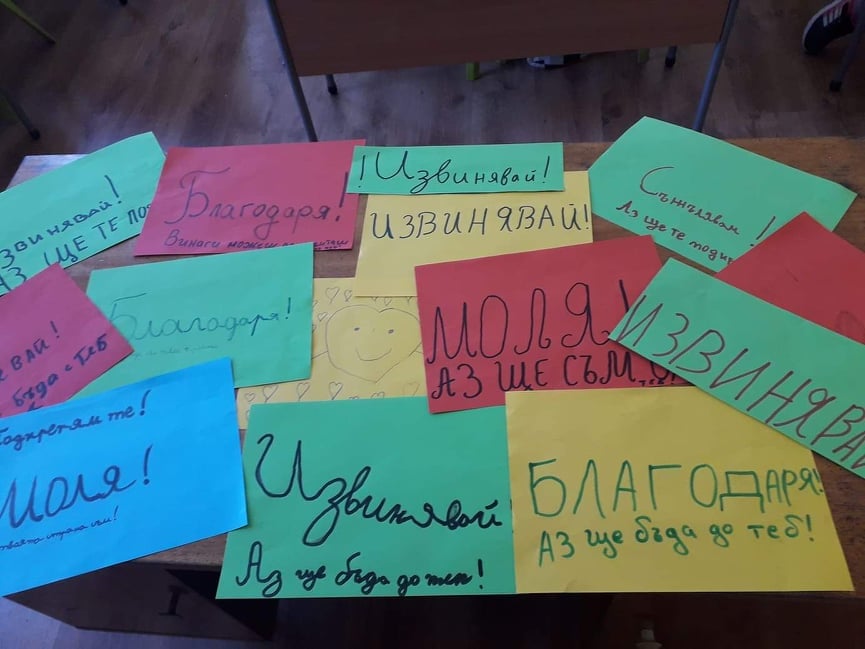 ИЗВИНЯВАЙ!
АЗ ЩЕ ТЕ
Благодаря!
Винаги можеш
!Извинявай!
ИЗВИНЯВАЙ!
Съжалявам!
Аз ще те
бъда с теб
Благодаря!
МОЛЯ!
АЗ ЩЕ СЪМ
ИЗВИНЯВАЙ
Подкрепям те!
Моля!
твоята страна съм!
Извинявай
Аз ще бъда до теп!
БЛАГОДАРЯ!
АЗ ще бъда до теб!